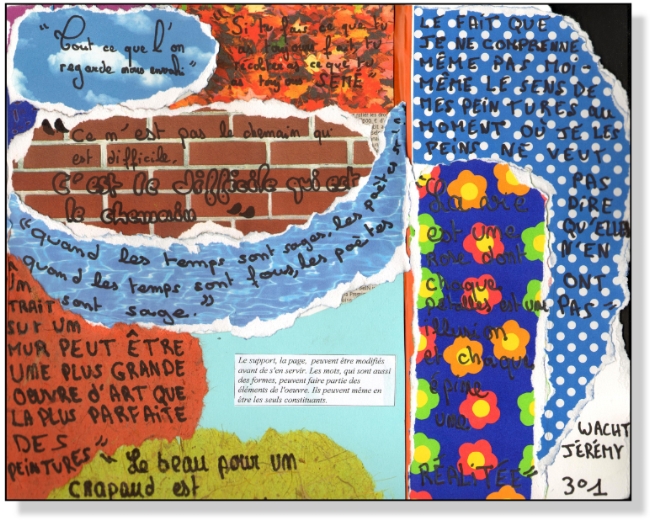 "Tout ce que l'on
regarde nous envahi"
"Si tu fais ce que tu
as toujours fait, tu
récolteras ce que tu
as toujours SEMÉ"
LE FAIT QUE
JE NE COMPRENNE
MÊME PAS MOI-
MÊME LE SENS DE
MES PEINTURES AU
MOMENT OÙ JE LES
PEINS NE VEUT
PAS
DIRE
QU'ELLES
N'EN
ONT
PAS"
"Ce n'est pas le chemain qui
est difficile.
C'est le difficile qui est
le chemain"
"quand les temps sont sages, les poètes sont
quand les temps sont fous, les poètes
sont sage."
UN
TRAIT
SUR UN
MUR PEUT ÊTRE
UNE PLUS GRANDE
OEUVRE D'ART QUE
LA PLUS PARFAITE
DES
PEINTURES"
Le support, la page, peuvent être modifiés
avant de s'en servir. Les mots, qui sont aussi
des formes, peuvent faire partie des
éléments de l'oeuvre. Ils peuvent même en
être les seuls constituants.
"Le beau pour un
CRAPAUD EST
est une
rose dont
chaque
pétalles est une
illusion
et chaque
épine
une
RÉALITÉE"
WACHT
JÉRÉMY
301